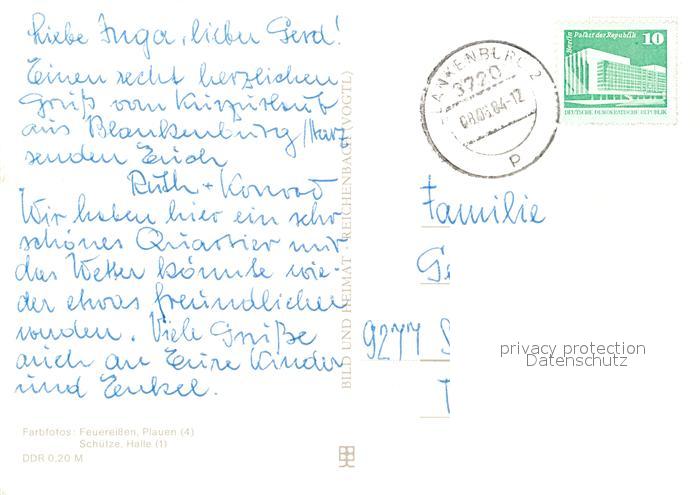 Liebe Inga, lieber Gerd!
Einen recht herzlichen
Gruß vom Kurzurlaub
aus Blankenburg/Harz
senden Euch
Ruth + Konrad
Wir haben hier ein sehr
schönes Quartier nur
das Wetter könnte wie-
der etwas freundlicher
werden. Viele Grüße
auch an Eure Kinder
und Enkel.
Farbfotos: Feuereißen, Plauen (4)
Schütze, Halle (1)
DDR 0,20 M
BILD UND HEIMAT REICHENBACH (VOGTL)
BLANKENBURG 2
3720
08.06.84-12
P
Berlin Palast der Republik
10
DEUTSCHE DEMOKRATISCHE REPUBLIK
Familie
G
9277 S
T
privacy protection
Datenschutz